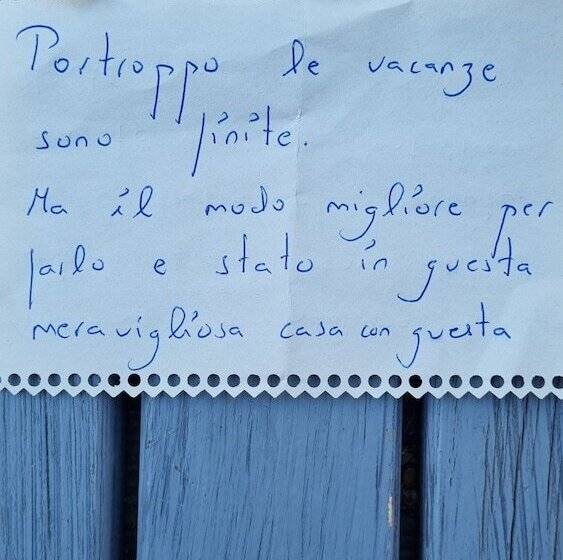 Portroppo le vacanze
sono finite.
Ma il modo migliore per
farlo e stato in questa
meravigliosa casa con questa